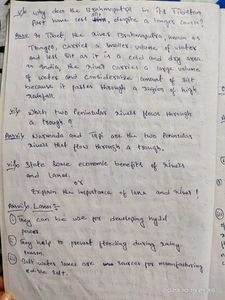 v) Why does the Brahmaputra in its Tibetan
part have less silt, despite a longer course?
Ans: In Tibet, the river Brahmaputra, known as
Tsangpo, carries a smaller volume of water
and less silt as it is a cold and dry area
In India, the river carries a large volume
of water and considerable amount of silt
because it passes through a region of high
rainfall.
vi) Which two Peninsular rivers flows through
a trough?
Ans:vi) Narmada and Tapi are the two Peninsular
rivers that flow through a trough.
vii) State some economic benefits of rivers
and lakes.
or
Explain the importance of lake and river?
Ans:vii) Lakes:-
i) They can be use for developing hydel
power.
ii) They help to prevent flooding during rainy
season
iii) Salt water lakes are sources for manufacturing
edible salt.